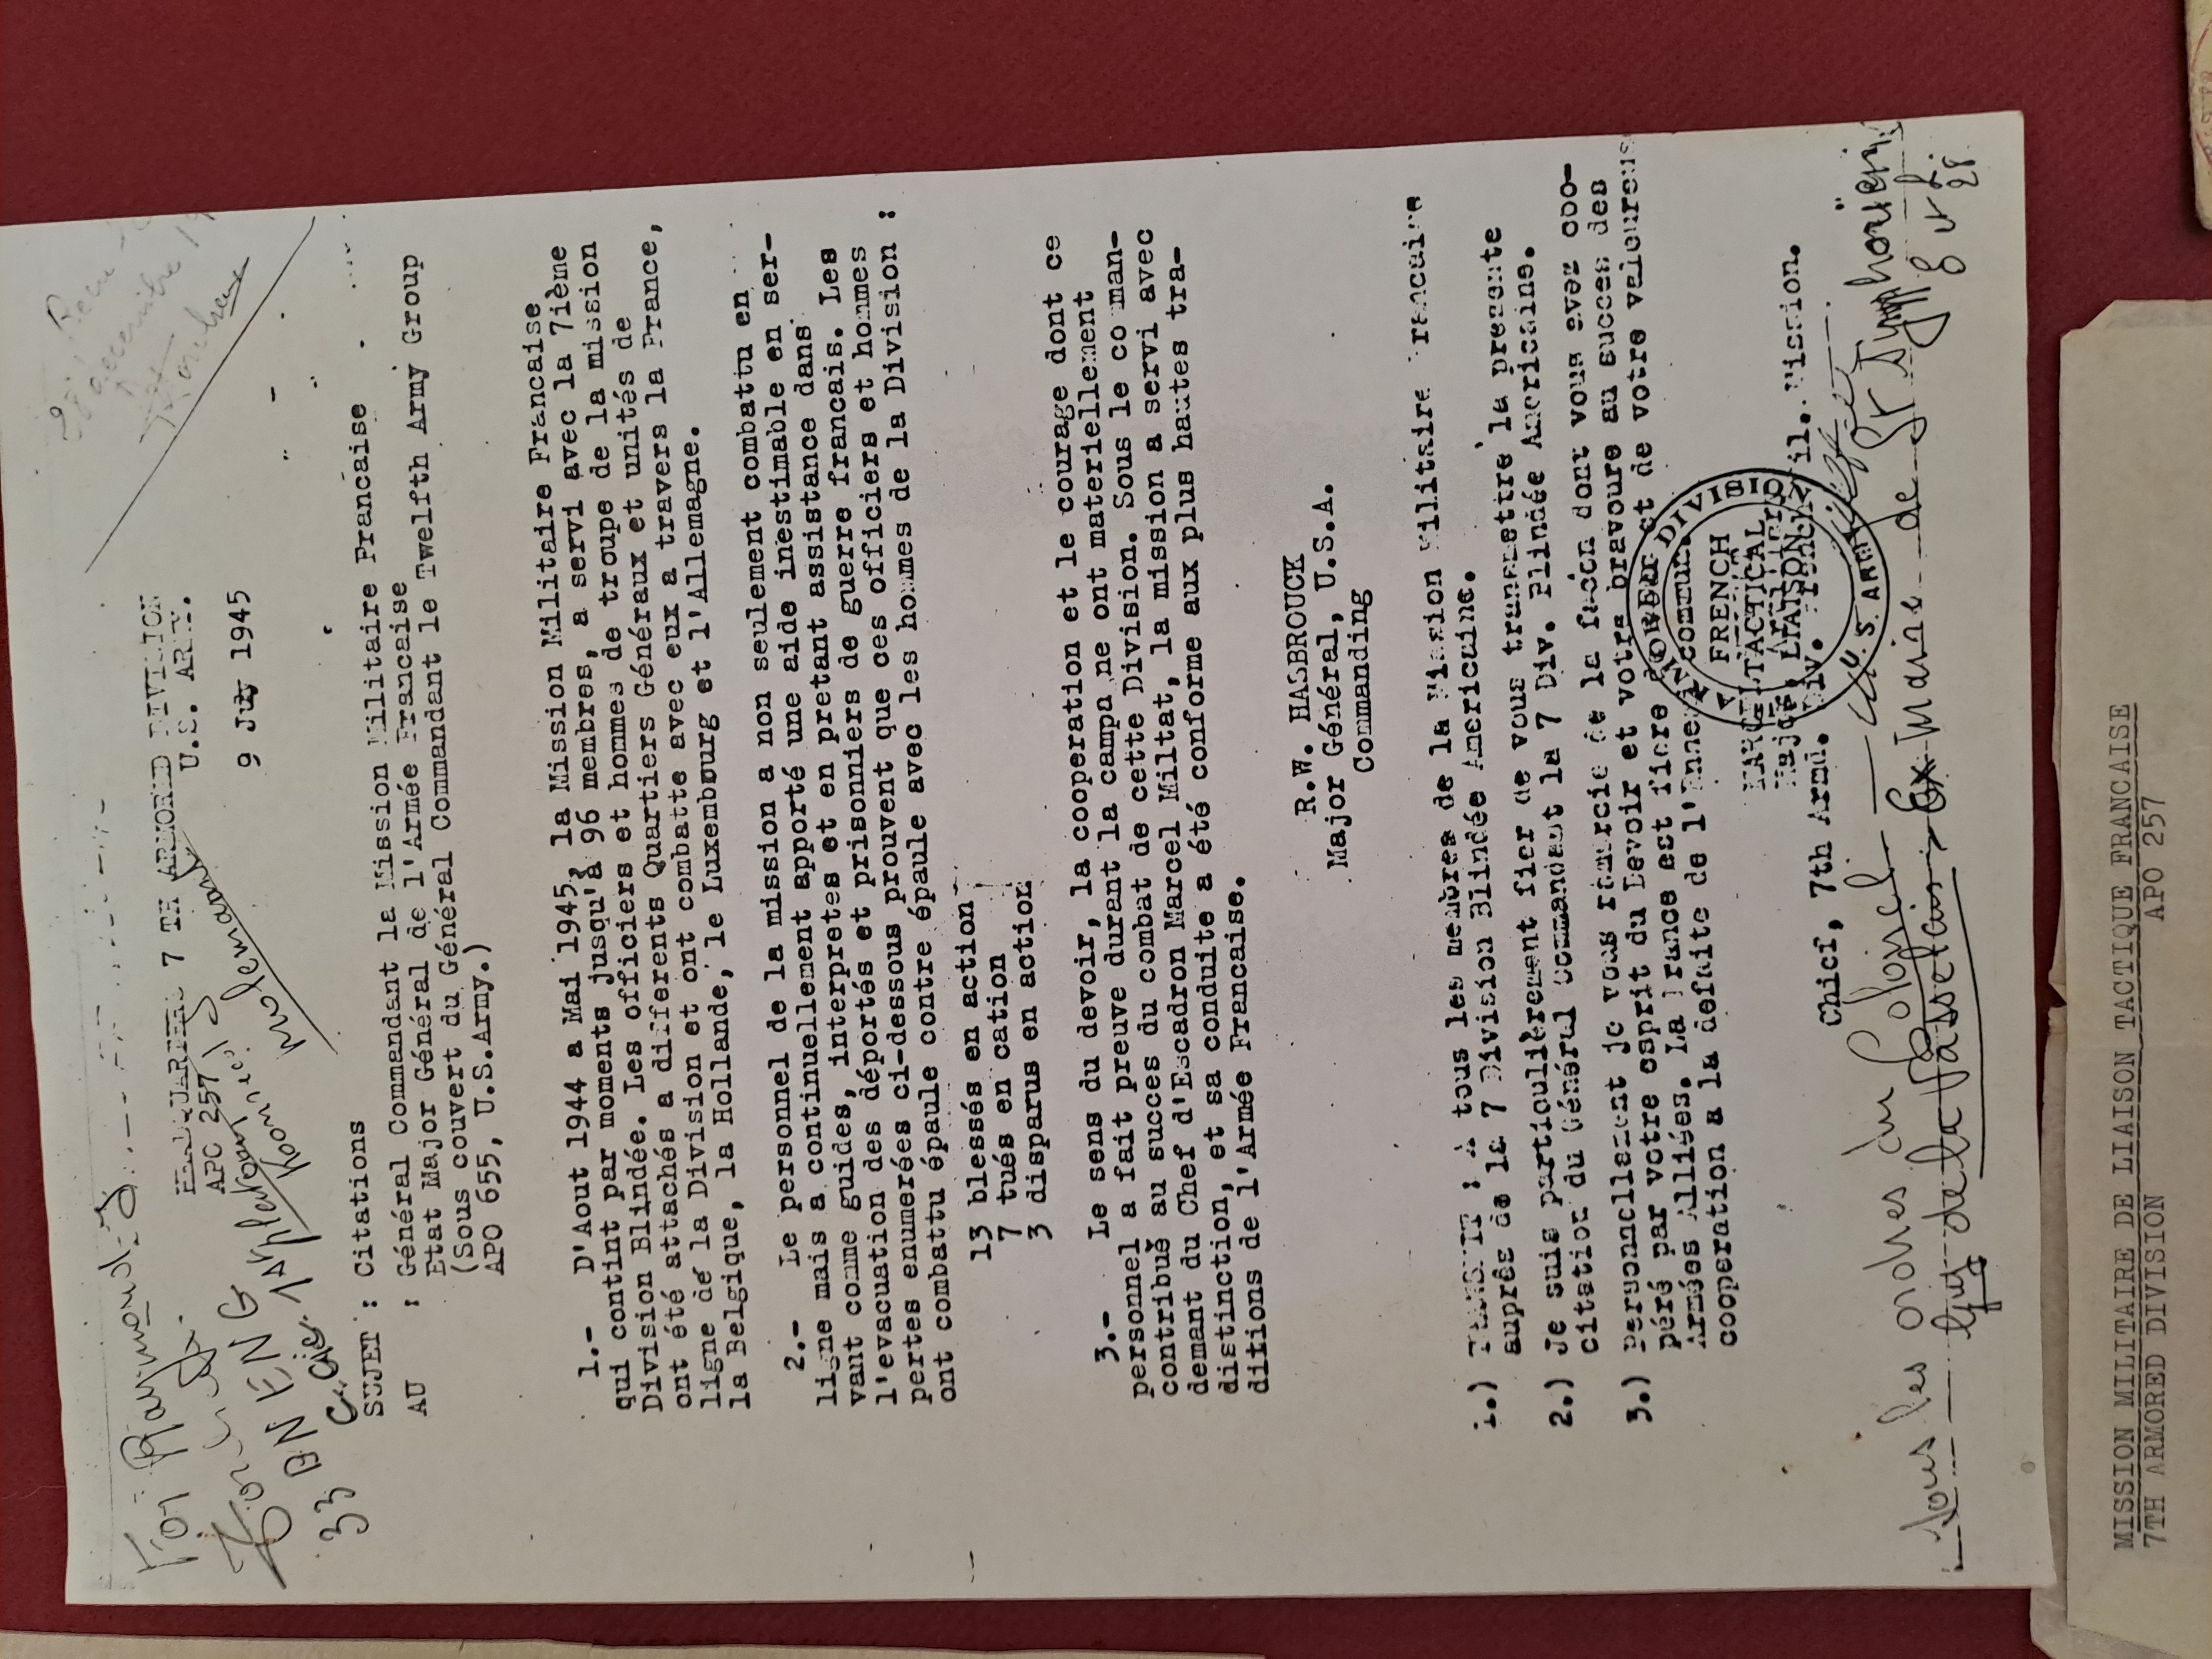 For Raymond
33 BN ENG
C. Cie.
HEADQUARTERS 7 TH ARMORED DIVISION
APO 257 U.S. ARMY.
9 1945
SUJET : Citations
AU : Général Commandant la Mission Militaire Francaise
Etat Major Général de l'Armée Francaise
(Sous couvert du Général Commandant le Twelfth Army Group
APO 655, U.S.Army.)
1.- D'Aout 1944 a Mai 1945, la Mission Militaire Francaise
qui contint par moments jusqu'à 96 membres, a servi avec la 7ième
Division Blindée. Les officiers et hommes de troupe de la mission
ont été attachés a differents Quartiers Généraux et unités de
ligne de la Division et ont combatte avec eux a travers la France,
la Belgique, la Hollande, le Luxembourg et l'Allemagne.
2.- Le personnel de la mission a non seulement combattu en
ligne mais a continuellement apporté une aide inestimable en ser-
vant comme guides, interpretes et en pretant assistance dans
l'evacuation des déportés et prisonniers de guerre francais. Les
pertes enumerées ci-dessous prouvent que ces officiers et hommes
ont combattu épaule contre épaule avec les hommes de la Division :
13 blessés en action
7 tués en cation
3 disparus en action
3.- Le sens du devoir, la cooperation et le courage dont ce
personnel a fait preuve durant la campa ne ont materiellement
contribué au succes du combat de cette Division. Sous le co man-
demant du Chef d'Escadron Marcel Militat, la mission a servi avec
distinction, et sa conduite a été conforme aux plus hautes tra-
ditions de l'Armée Francaise.
R.W. HASBROUCK
Major Général, U.S.A.
Commanding
1.) TRANSMIT : A tous les membres de la Mission Militaire Francaise
auprès de la 7 Division Blindée Americaine.
2.) Je suis particulièrement fier de vous transmettre la presente
citation du Général Commandant la 7 Div. Blindée Americaine.
3.) Personnellement je vous remercie de la facon dont vous avez coo-
péré par votre esprit du Devoir et votre bravoure au succes des
Armées Alliées. La France est fiere de votre valeureuse
cooperation a la defaite de l'Ennemi commun.
FRENCH
TACTICAL
LIAISON
U. S. ARMY
Chief, 7th Armd. Div. Mil. Mission.
Sous les ordres du Colonel
Guy de la Vasselais Ex Maire de St Symphorien
MISSION MILITAIRE DE LIAISON TACTIQUE FRANCAISE
7TH ARMORED DIVISION APO 257